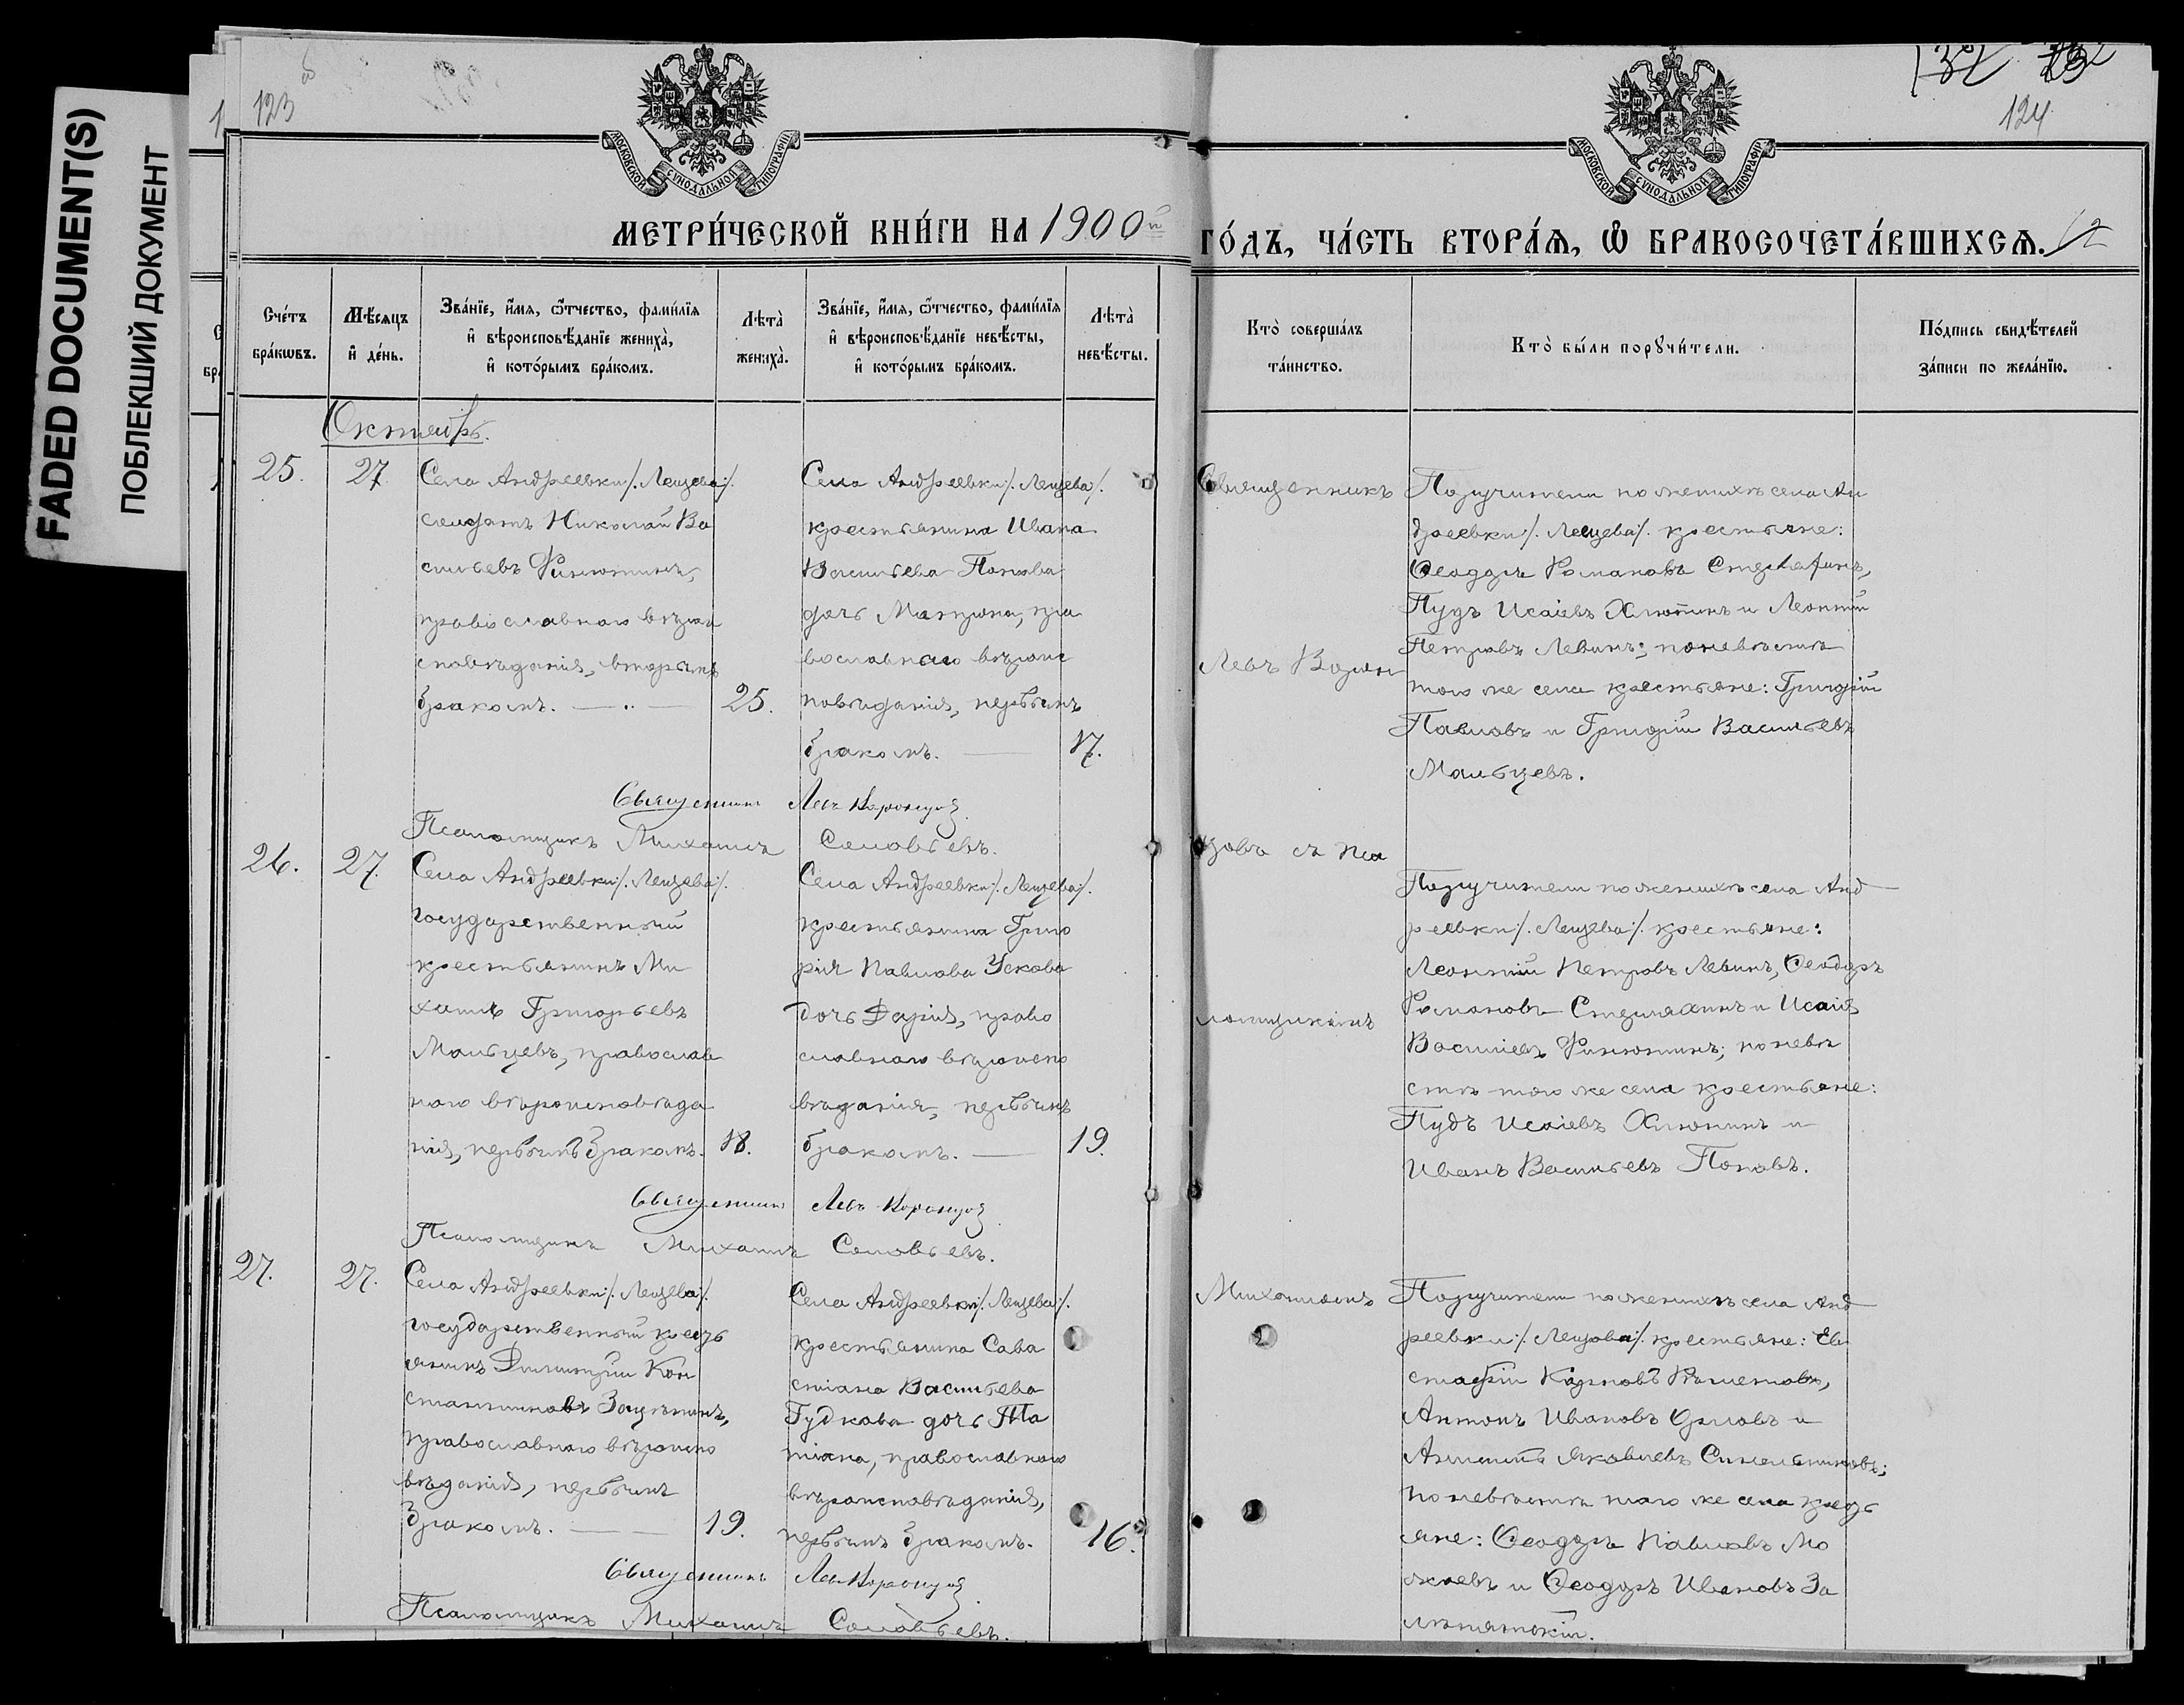 FADED DOCUMENT(S)
ПОБЛЕКШИЙ ДОКУМЕНТ
123
об
124
МОСКОВСКОЙ СѴНОДАЛЬНОЙ ТИПОГРАФІИ
МОСКОВСКОЙ СѴНОДАЛЬНОЙ ТИПОГРАФІИ
МЕТРИ́ЧЕСКОЙ КНИ́ГИ НА 1900й
ГО́ДЪ, ЧА́СТЬ ВТОРА́Я, Ѽ БРАКОСОЧЕТА́ВШИХСЯ. 12
Сче́тъ
бра́кѡвъ.
Мѣ́сяцъ
и҆ де́нь.
Зва́нїе, и҆́мя, ѻ҆́тчество, фами́лїя
и҆ вѣроисповѣ́данїе жениха̀,
и҆ кото́рымъ бра́комъ.
Лѣта̀
жениха̀.
Зва́нїе, и҆́мя, ѻ҆́тчество, фами́лїя
и҆ вѣроисповѣ́данїе невѣ́сты,
и҆ кото́рымъ бра́комъ.
Лѣта̀
невѣ́сты.
Кто̀ соверша́лъ
та́инство.
Кто̀ бы́ли порꙋчи́тели.
По́дпись свидѣ́телей
за́писи по жела́нїю.
Октябрь.
25.
27.
Села Андреевки /: Лещева :/
солдатъ Николай Ва
сильевъ Финютинъ,
православнаго вѣрои
сповѣданія, вторымъ
бракомъ. — „ —
25.
Села Андреевки /: Лещева :/
крестьянина Ивана
Васильева Попова
дочь Матрона, пра
вославнаго вѣроис
повѣданія, первымъ
бракомъ. —
17.
Священникъ
Левъ Ворон
цовъ съ пса
ломщикомъ
Михаиломъ
Поручители по женихѣ села Ан
дреевки /: Лещева :/ крестьяне:
Ѳеодоръ Романовъ
Пудъ Исаіевъ Хлюпинъ и Леонтій
Петровъ Левинъ; по невѣстѣ
того же села крестьяне: Григорій
Павловъ и Григорій Васильевъ
Мальцевъ.
Священникъ Левъ Воронцовъ.
Псаломщикъ Михаилъ Соловьевъ.
26.
27.
Села Андреевки /: Лещева :/
государственный
крестьянинъ Ми
хаилъ Григорьевъ
Мальцевъ, православ
наго вѣроисповѣда
нія, первымъ бракомъ.
18.
Села Андреевки /: Лещева :/
крестьянина Григо
рія Павлова Ускова
дочь Дарія, право
славнаго вѣроиспо
вѣданія, первымъ
бракомъ. —
19.
Поручители по женихѣ села Анд
реевки /: Лещева :/ крестьяне:
Леонтій Петровъ Левинъ, Ѳеодоръ
Романовъ и Исаія
Васильевъ Финютинъ; по невѣ
стѣ того же села крестьяне:
Пудъ Исаіевъ Хлюпинъ и
Иванъ Васильевъ Поповъ.
Священникъ Левъ Воронцовъ
Псаломщикъ Михаилъ Соловьевъ.
27.
27.
Села Андреевки /: Лещева :/
государственный кресть
янинъ Димитрій Кон
стантиновъ
православнаго вѣроиспо
вѣданія, первымъ
бракомъ. — —
19.
Села Андреевки /: Лещева :/
крестьянина Сава
стіана Васильева
Гудкова дочь Та
тіана, православнаго
вѣроисповѣданія,
первымъ бракомъ.
16.
Поручители по женихѣ села Анд
реевки /: Лещова :/ крестьяне: Ев
стафій Карповъ
Антонъ Ивановъ Орловъ и
Яковлевъ Синельниковъ;
по невѣстѣ того же села кресть
яне: Ѳеодоръ Павловъ Мо
жаевъ и Ѳеодоръ Ивановъ За
Священникъ Левъ Воронцовъ
Псаломщикъ Михаилъ Соловьевъ.